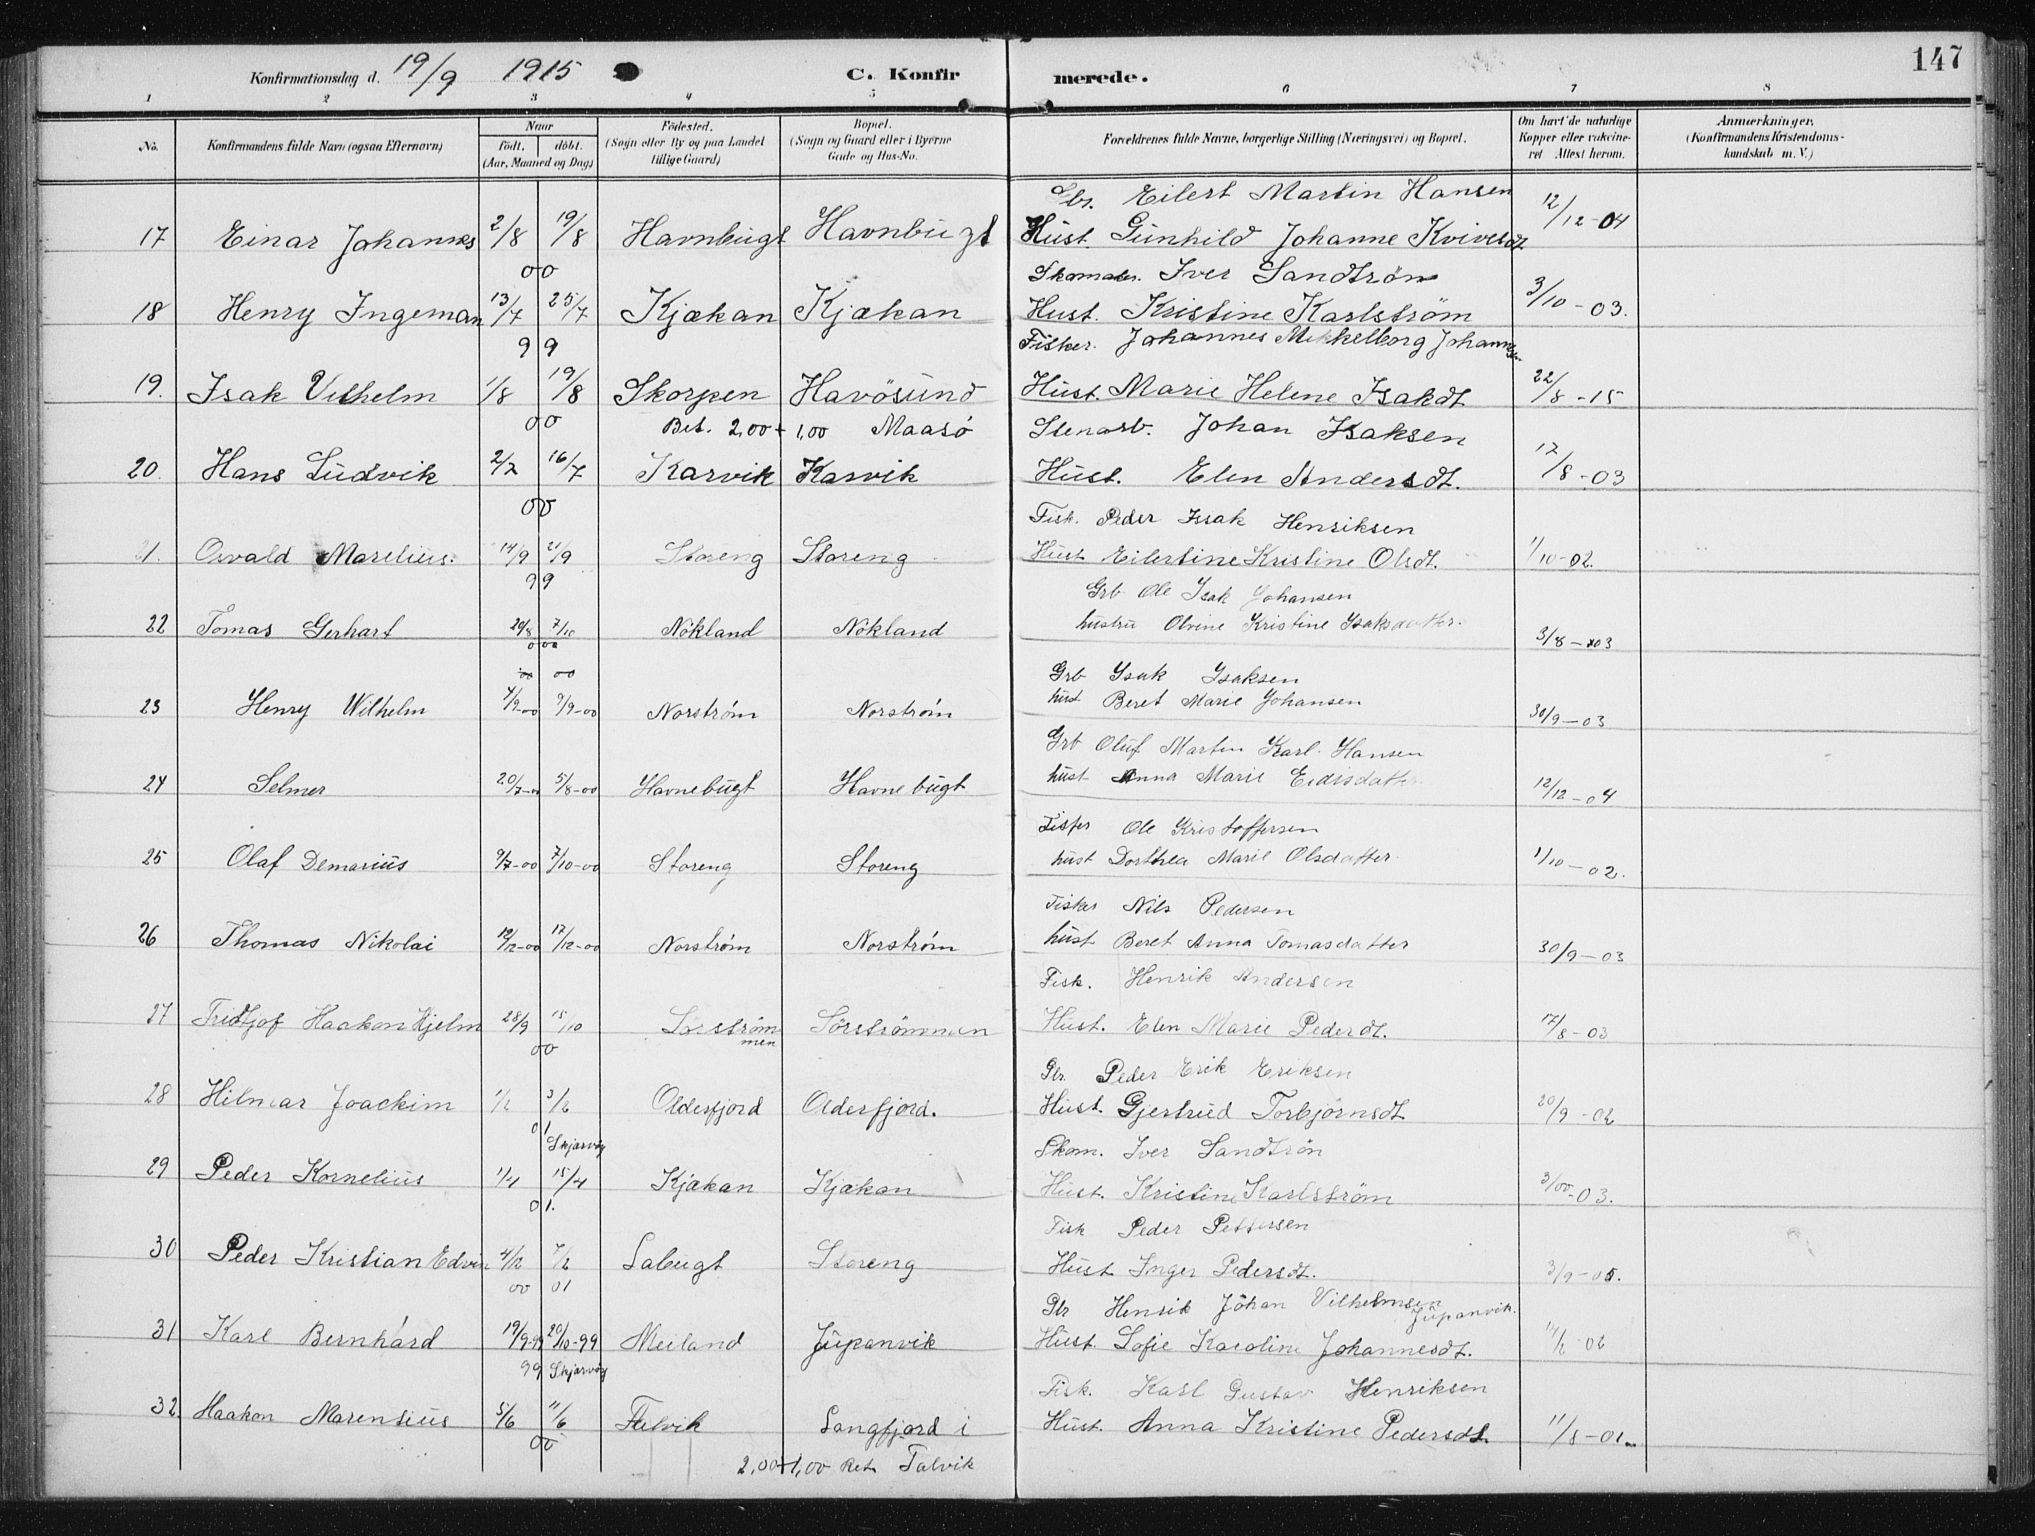 147
Konfirmationsdag d. 19/9 1915 C. Konfirmerede.
1 2 3 4 5 6 7 8
No. Konfirmandens fulde Navn (ogsaa Efternavn) Naar født. døbt. (Aar, Maaned og Dag) Fødested. (Sogn eller By og paa Landet tillige Gaard) Bopæl. (Sogn og Gaard eller i Byerne Gade og Hus-No. Forældrenes fulde Navne, borgerlige Stilling (Næringsvei) og Bopæl. Om havt de naturlige Kopper eller vakcineret Attest herom. Anmærkninger. (Konfirmandens Kristendomskundskab m. V.)
Eilert Martin Hansen
17 Einar Johannes 2/8 19/8 Havnbugt Havnbugt Hust. Gunhild Johanne Kvivesdt 12/12-04
00
Skomaker. Iver Sandtrøn
18 Henry Ingeman 13/7 25/7 Kjækan Kjækan Hust. Kristine Karlstrøm 3/10-03.
99
Fisker. Johannes Mikkelborg Johannessen
19. Isak Vilhelm 1/8 19/8 Skorpen Havösund Hust. Marie Helene Isakdt 22/8-15
00 Bet. 2,00 + 1,00 Maasö
Stenarb. Johan Isaksen
20. Hans Ludvik 2/7 16/7 Karvik Karvik Hust. Elen Andersdt. 17/8-03
00
Fisk. Peder Issak Henriksen
21. Osvald Marelius. 14/9 21/9 Storeng Storeng Hust Eilertine Kristine Olsdt. 1/10-02.
99
Grb Ole Isak Johansen
22 Tomas Gerhart 20/8 7/10 Nökland Nökland hustru Olvine Kristine Isaksdatter. 3/8-03
00
00 00
Grb Ysak Ysaksen
23 Henry Wilhelm 4/9-00 9/9-00 Norstrøm Norstrøm hust Beret Marie Johansen 30/9-03
Grb Oluf Martin Karl Hansen
24 Selmer 20/7-00 5/8-00 Havnebugt Havnebugt hust Anna Marie Eidisdatter 12/12-04
Fisker Ole Kristoffersen
25 Olaf Demarius 9/7-00 7/10-00 Storeng Storeng hust Dorthea Marie Olsdatter 1/10-02.
Fisker Nils Pedersen
26 Thomas Nikolai 12/12-00 17/12-00 Norstrøm Norstrøm hust Beret Anna Tomasdatter 30/9-03
Fisk. Henrik Andersen
27 Fridtjof Haakon Hjelm 28/9 15/10 Sørstrømmen Sørstrømmen Hust. Elen Marie Pederdt. 17/8-03
00
Gbr. Peder Erik Eriksen
28 Hilmar Joackim 1/2 3/2 Olderfjord Olderfjord. Hust. Gjertrud Torbjørnsdt 20/9-02
01
Skjærvøy
Skom. Iver Sandtrön
29 Peder Kornelius 1/4 15/4 Kjækan Kjækan Hust. Kristine Karlstrøm 3/00-03.
01.
Fisk Peder Pettersen
30 Peder Kristian Edvin 4/2 7/2 Labugt Storeng Hust Inger Pedersdt. 3/9-05.
00 01
Gbr Henrik Johan Vilhelmsen Jupanvik.
31 Karl Bernhard 19/9-99 20/10-99 Meiland Jupanvik Hust. Sofie Karoline Johannesdt. 11/2-02
99 Skjærvøy
Fisk. Karl Gustav Henriksen
32. Haakon Marensius 5/6 11/6 Talvik Langfjord i Hust. Anna Kristine Pedersdt. 11/8-01
00
2,00+1,00 Bet. Talvik